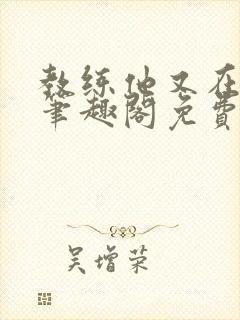 教练他又在
笔趣阁免费
吴增荣